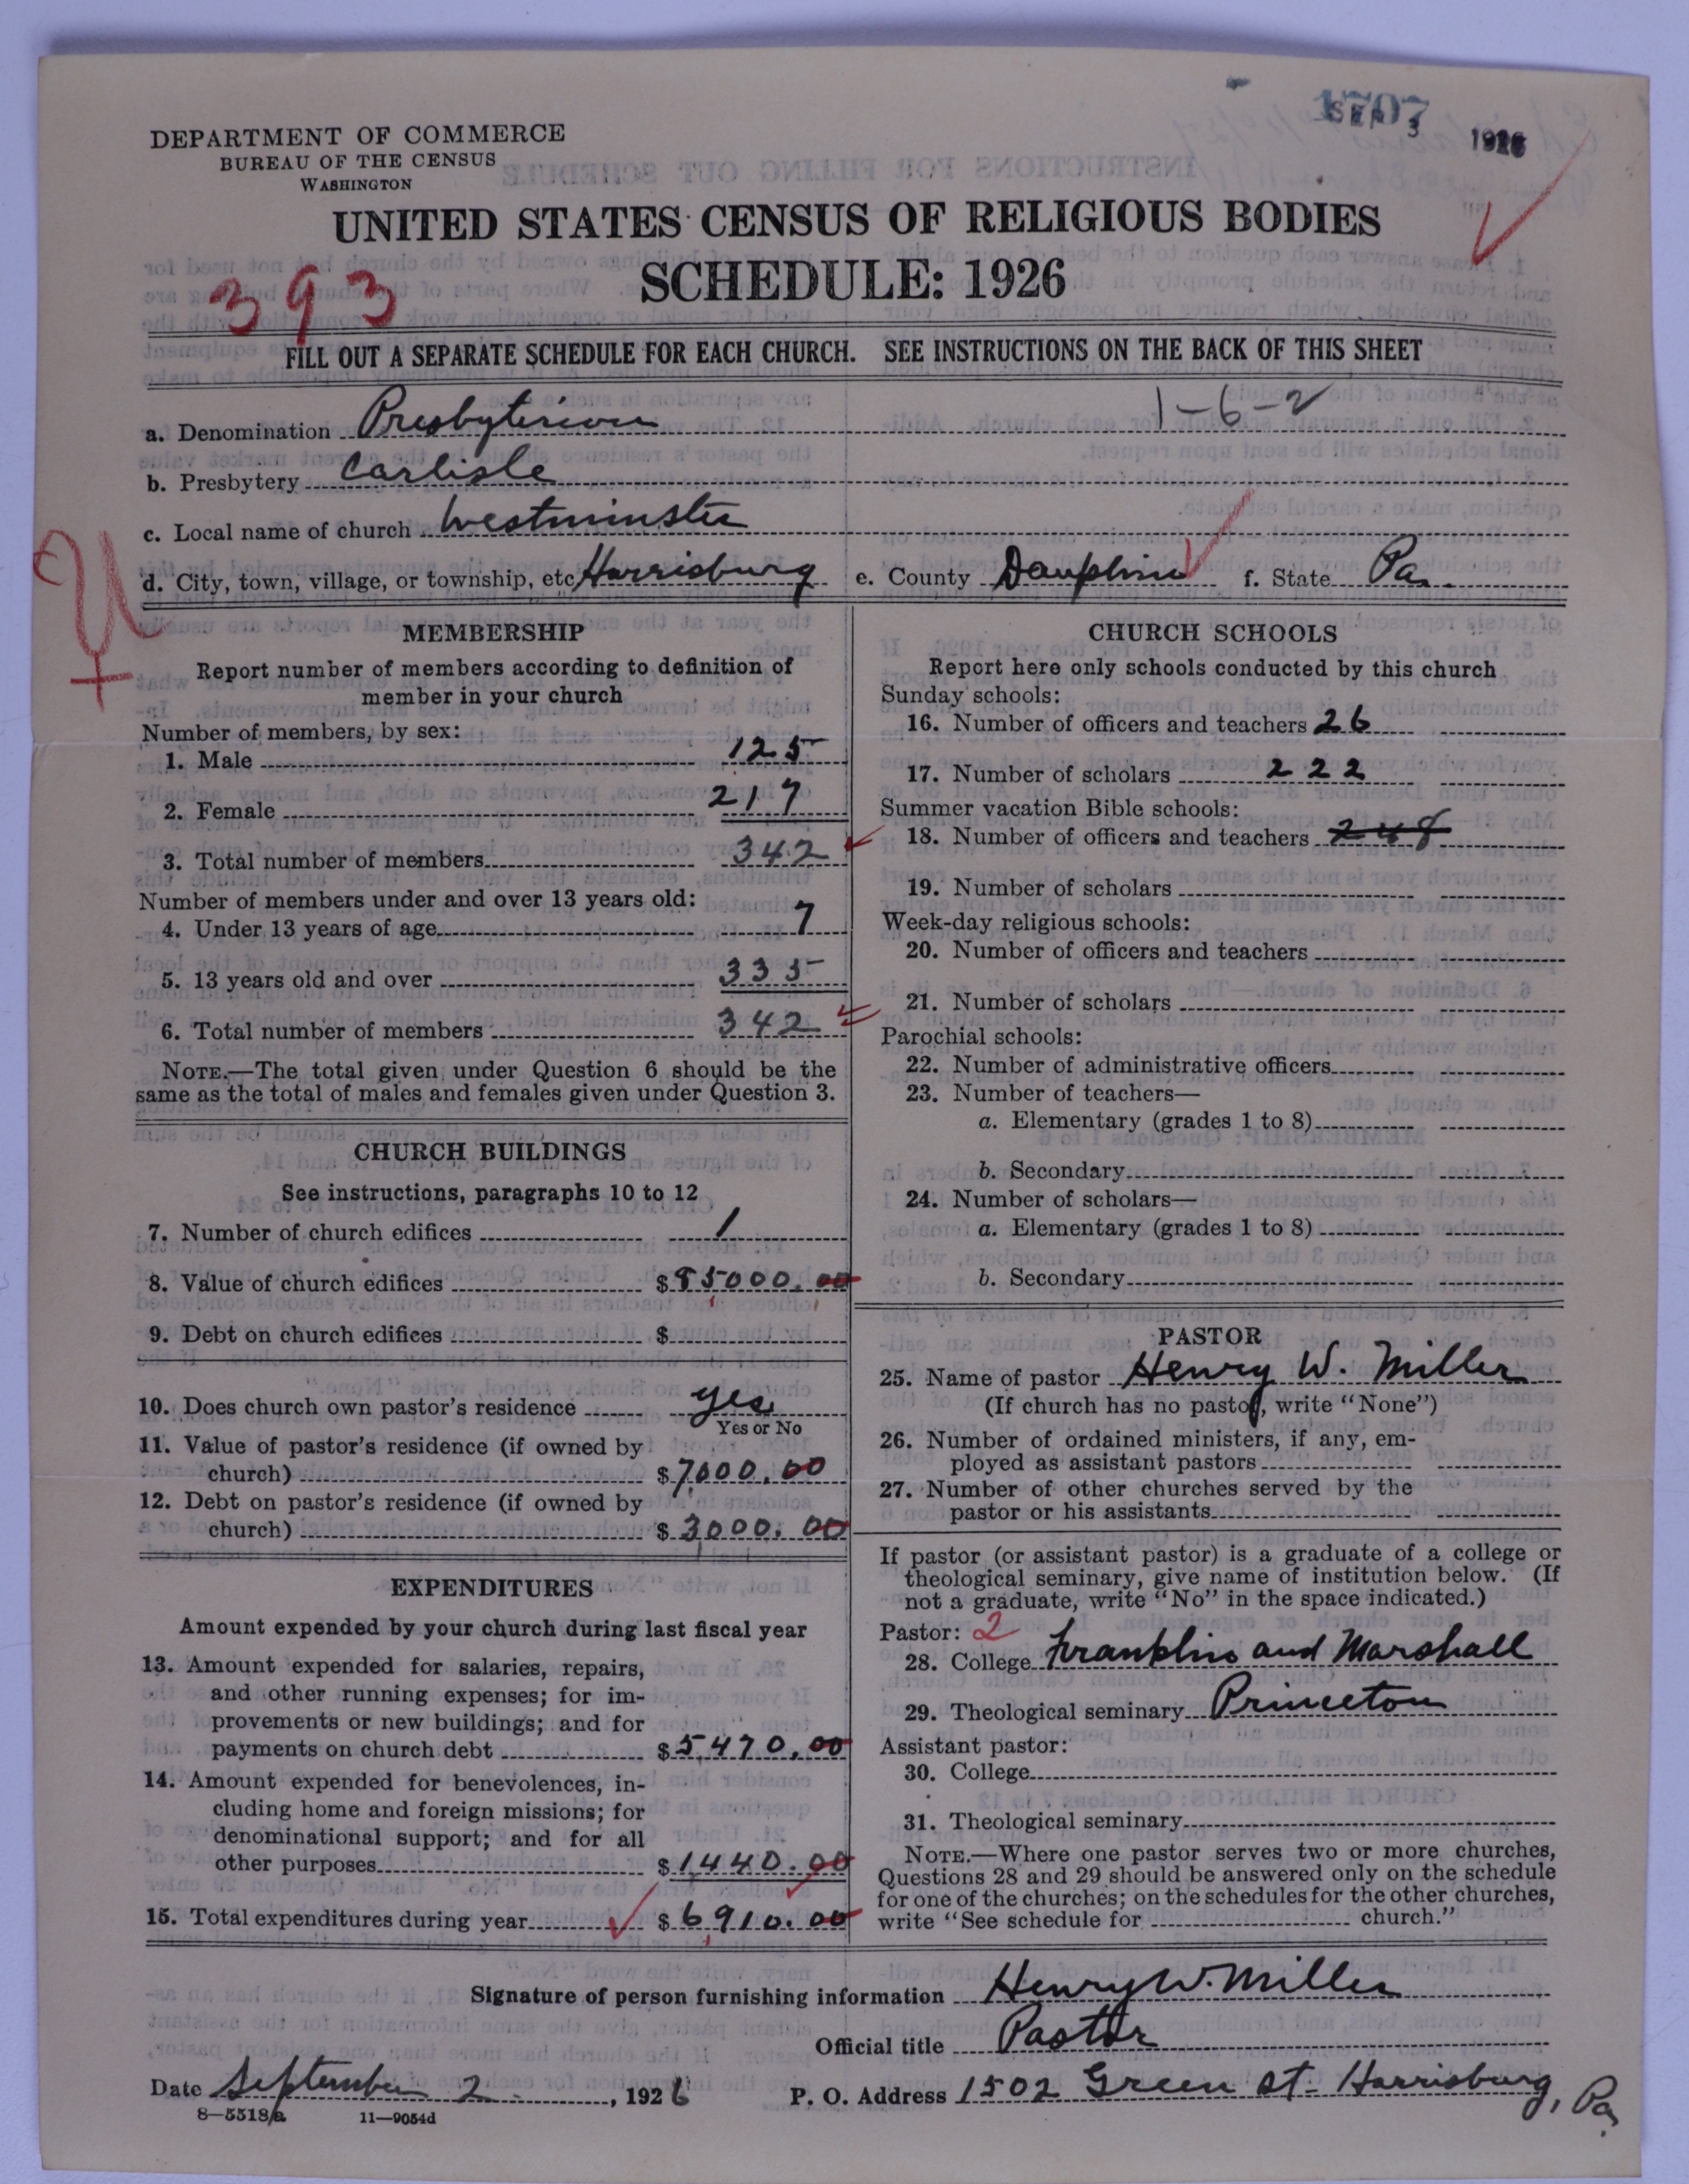 1707
SEP 3 1926
DEPARTMENT OF COMMERCE
BUREAU OF THE CENSUS
WASHINGTON
UNITED STATES CENSUS OF RELIGIOUS BODIES
SCHEDULE: 1926
393
FILL OUT A SEPARATE SCHEDULE FOR EACH CHURCH. SEE INSTRUCTIONS ON THE BACK OF THIS SHEET
1-6-2
a. Denomination Presbyterian
b. Presbytery Carlisle
c. Local name of church Westminster
d. City, town, village, or township, etc Harrisburg e. County Dauphin f. State Pa.
MEMBERSHIP
Report number of members according to definition of
member in your church
Number of members, by sex:
1. Male 125
2. Female 217
3. Total number of members 342
Number of members under and over 13 years old:
4. Under 13 years of age 7
5. 13 years old and over 335
6. Total number of members 342
NOTE.—The total given under Question 6 should be the
same as the total of males and females given under Question 3.
CHURCH BUILDINGS
See instructions, paragraphs 10 to 12
7. Number of church edifices 1
8. Value of church edifices $85000.00
9. Debt on church edifices $
10. Does church own pastor's residence yes
Yes or No
11. Value of pastor's residence (if owned by
church) $7000.00
12. Debt on pastor's residence (if owned by
church) $3000.00
EXPENDITURES
Amount expended by your church during last fiscal year
13. Amount expended for salaries, repairs,
and other running expenses; for im-
provements or new buildings; and for
payments on church debt $5470.00
14. Amount expended for benevolences, in-
cluding home and foreign missions; for
denominational support; and for all
other purposes $1440.00
15. Total expenditures during year $6910.00
CHURCH SCHOOLS
Report here only schools conducted by this church
Sunday schools:
16. Number of officers and teachers 26
17. Number of scholars 222
Summer vacation Bible schools:
18. Number of officers and teachers 248
19. Number of scholars
Week-day religious schools:
20. Number of officers and teachers
21. Number of scholars
Parochial schools:
22. Number of administrative officers
23. Number of teachers—
a. Elementary (grades 1 to 8)
b. Secondary
24. Number of scholars—
a. Elementary (grades 1 to 8)
b. Secondary
PASTOR
25. Name of pastor Henry W. Miller
(If church has no pastor, write "None")
26. Number of ordained ministers, if any, em-
ployed as assistant pastors
27. Number of other churches served by the
pastor or his assistants
If pastor (or assistant pastor) is a graduate of a college or
theological seminary, give name of institution below. (If
not a graduate, write "No" in the space indicated.)
Pastor: 2
28. College Franklin and Marshall
29. Theological seminary Princeton
Assistant pastor:
30. College
31. Theological seminary
NOTE.—Where one pastor serves two or more churches,
Questions 28 and 29 should be answered only on the schedule
for one of the churches; on the schedules for the other churches,
write "See schedule for church."
Signature of person furnishing information Henry W. Miller
Official title Pastor
Date September 2, 1926 P. O. Address 1502 Green St. Harrisburg, Pa.
8—5518a 11—9054d